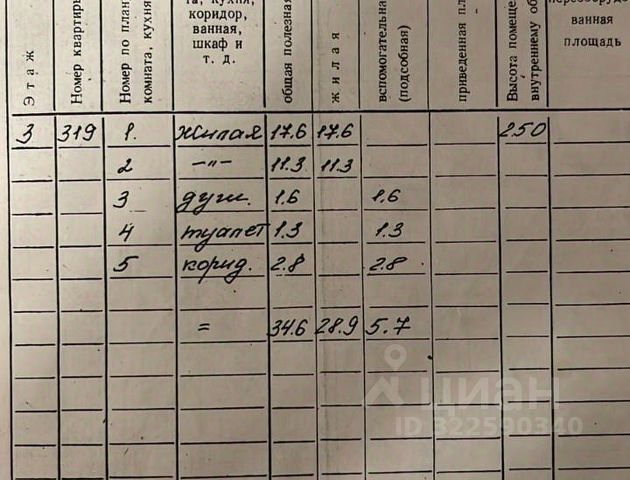 Этаж
Номер квартиры
Номер по план
комната, кухня
та, кухня,
коридор,
ванная,
шкаф и
т. д.
общая полезная
жилая
вспомогательна
(подсобная)
приведенная пл
Высота помеще
внутреннему об
переоборудо
ванная
площадь
3 319 1. жилая 17.6 17.6 250
2 —"— 11.3 11.3
3 душ. 1.6 1.6
4 туалет 1.3 1.3
5 корид. 2.8 2.8
= 34.6 28.9 5.7
циан
ID 322590340